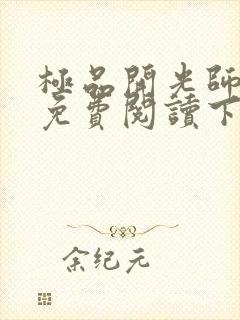 極品開光師
免費閱讀下
余纪元